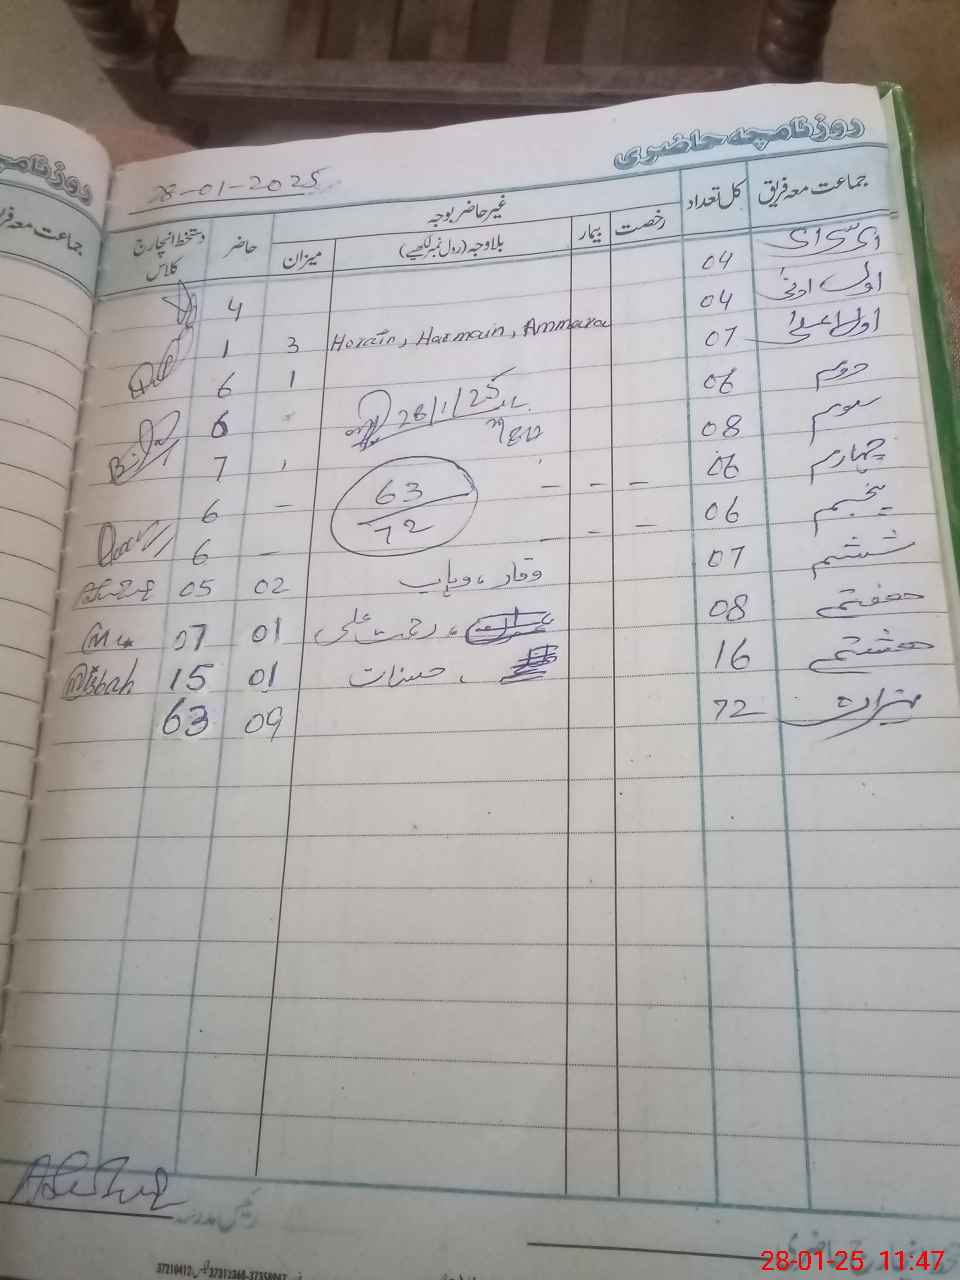 روزنامچہ حاضری
28-01-2025
جماعت معہ فریق کل تعداد رخصت بیمار غیر حاضر بوجہ بلاوجہ (رول نمبر لکھیے) میزان حاضر دستخط انچارج کلاس
ای سی ای 04 4
اول ادنیٰ 04 Horain, Harmain, Ammara 3 1
اول اعلیٰ 07 1 6
دوم 06 28/1/25 6
سوم 08 7
چہارم 06 - - - 63/72 - 6
پنجم 06 - - - 6
ششم 07 وقار، وہاب 02 05
ہفتم 08 رحمت علی 01 07
ہشتم 16 حسنات 01 15 Misbah
میزان 72 09 63
رئیس مدرسہ
روزنامچہ
جماعت معہ فریق
28-01-25 11:47